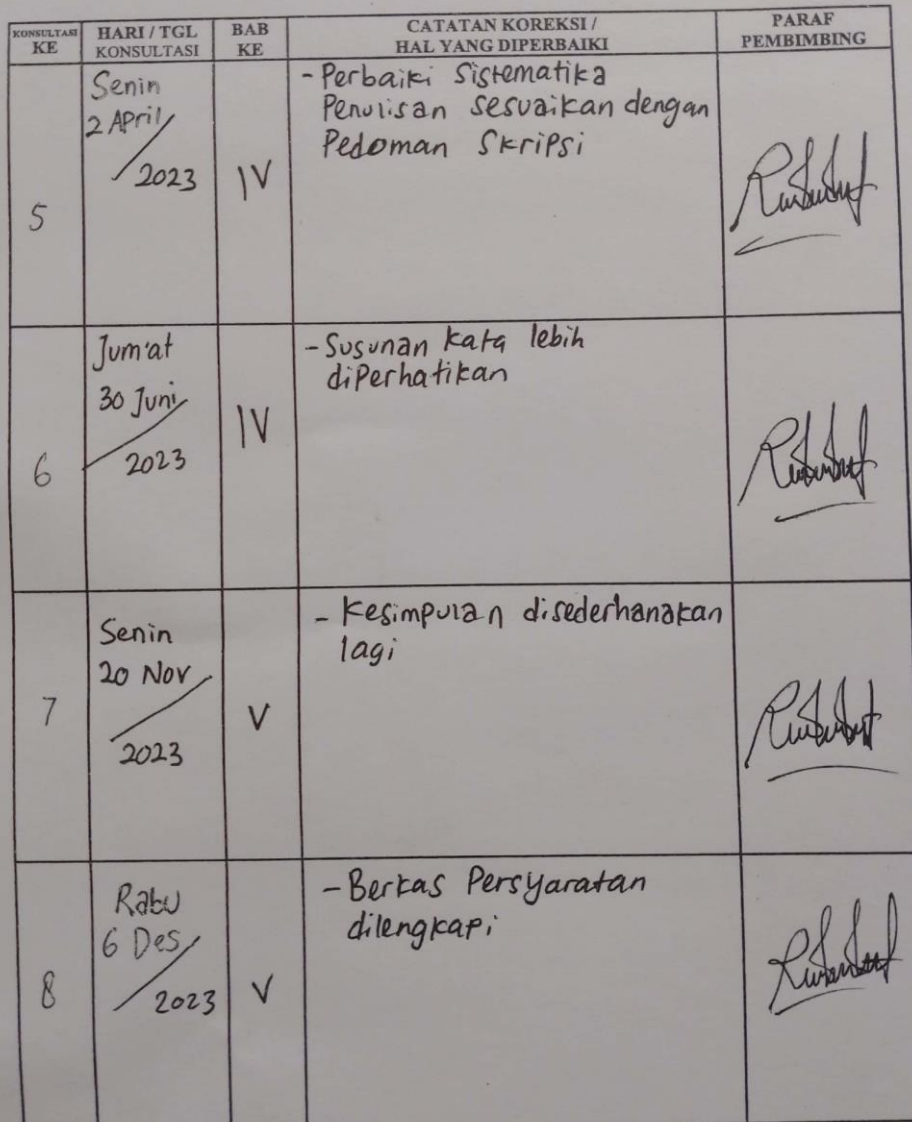 KONSULTASI KE HARI / TGL KONSULTASI BAB KE CATATAN KOREKSI / HAL YANG DIPERBAIKI PARAF PEMBIMBING
5
Senin
2 April
/ 2023
IV
- Perbaiki Sistematika
Penulisan sesuaikan dengan
Pedoman Skripsi
6
Jum'at
30 Juni
/ 2023
IV
- Susunan kata lebih
diperhatikan
7
Senin
20 Nov
/ 2023
V
- Kesimpulan disederhanakan
lagi
8
Rabu
6 Des
/ 2023
V
- Berkas Persyaratan
dilengkapi